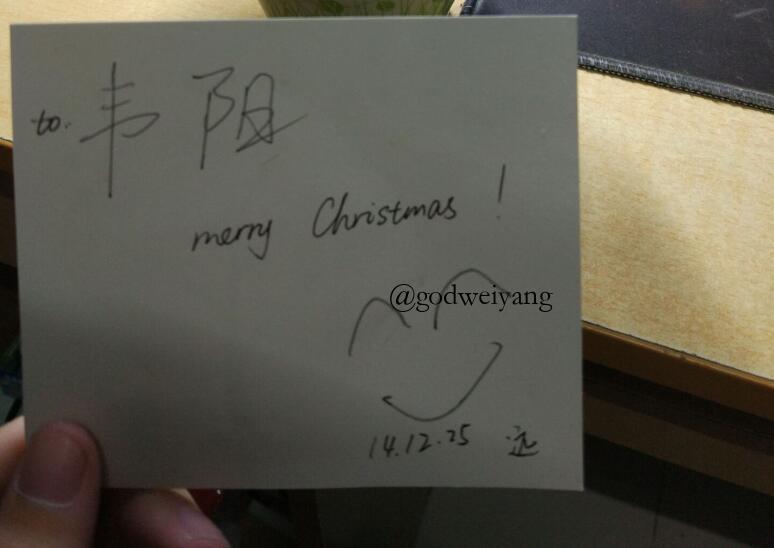 to. 韦阳
merry Christmas !
@godweiyang
14.12.25 远